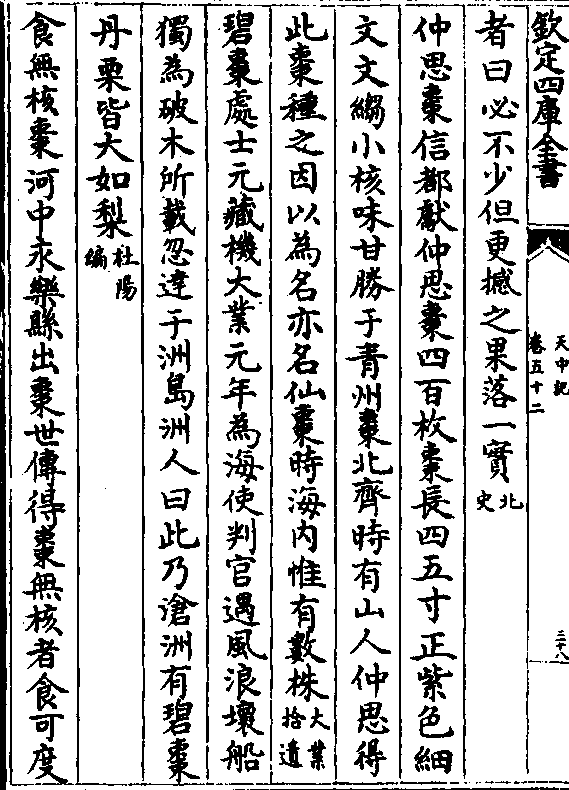 欽定四庫全書
天中記
卷五十二
三十八
者曰必不少但更撼之果落一實北史
仲思棗信都獻仲思棗四百枚棗長四五寸正紫色細
文文縐小核味甘勝于青州棗北齊時有山人仲思得
此棗種之因以為名亦名仙棗時海内惟有數株大業拾遺
碧棗處士元藏機大業元年為海使判官遇風浪壞船
獨為破木所載忽達于洲島洲人曰此乃滄洲有碧棗
丹栗皆大如梨杜陽編
食無核棗河中永樂縣出棗世傳得棗無核者食可度